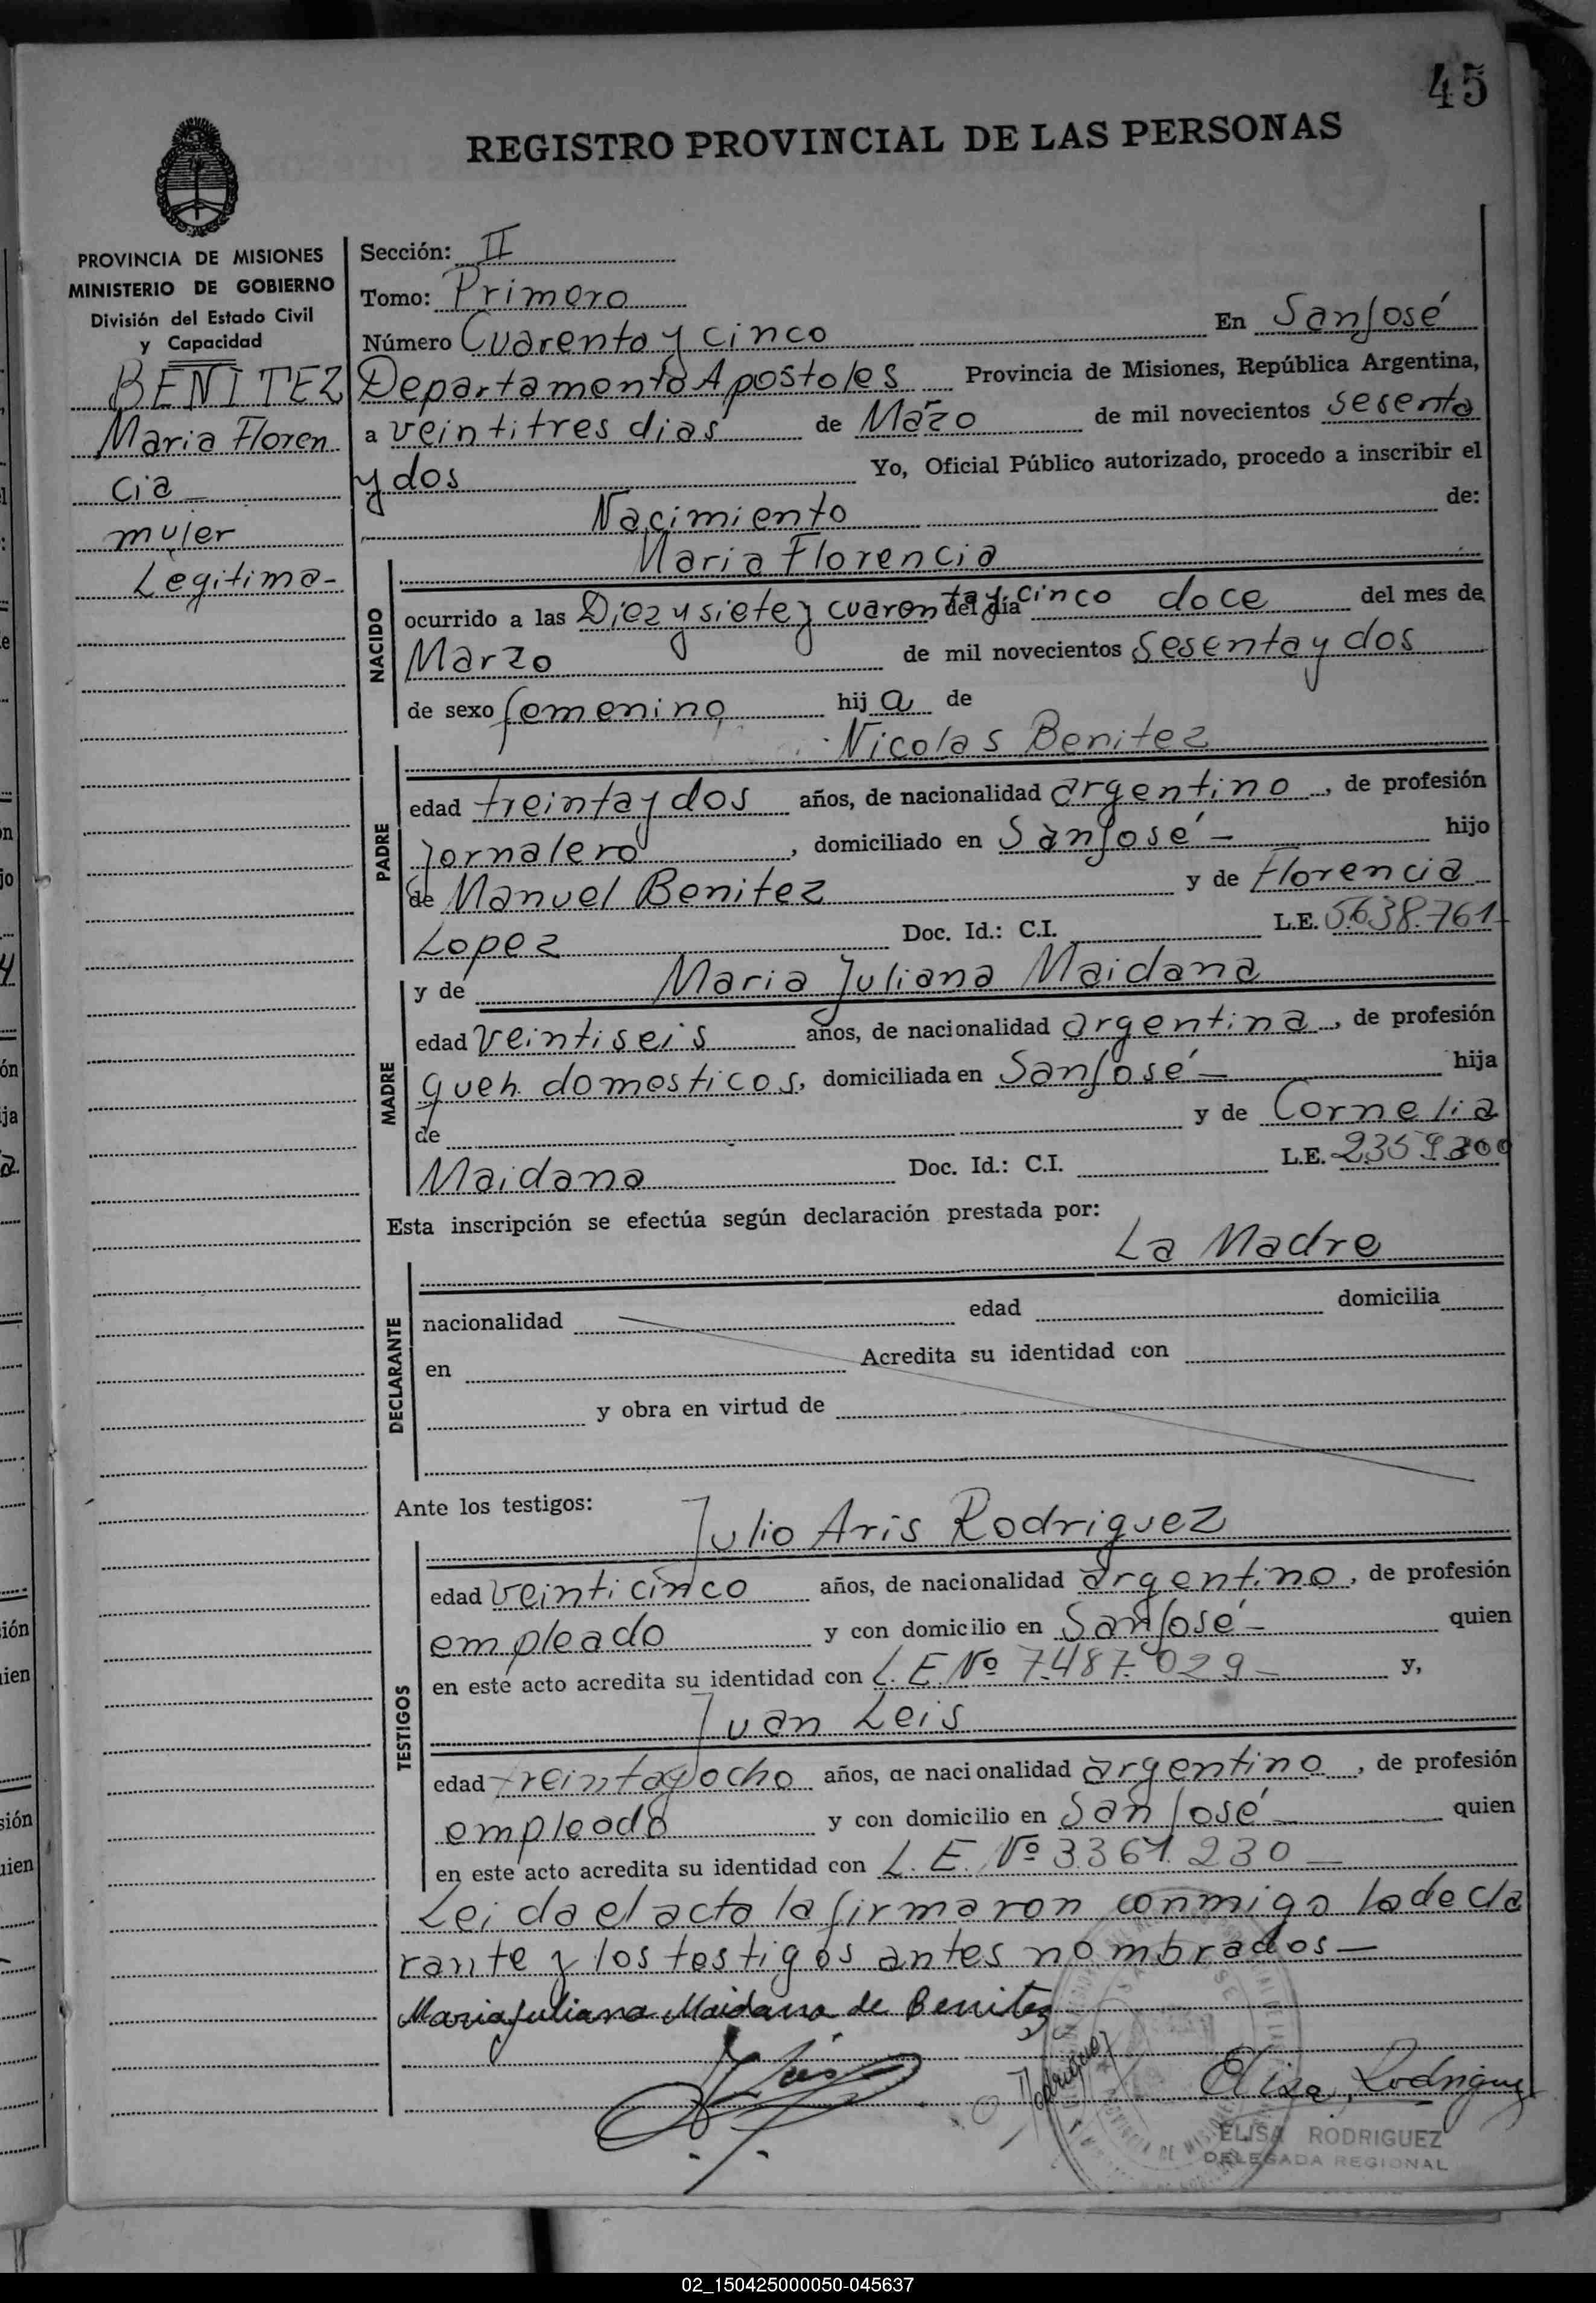 45
REGISTRO PROVINCIAL DE LAS PERSONAS
PROVINCIA DE MISIONES
MINISTERIO DE GOBIERNO
División del Estado Civil
y Capacidad
BENITEZ
Maria Floren
cia
mujer
Legitima-
Sección: II
Tomo: Primero
Número Cuarenta y cinco En San José
Departamento Apostoles Provincia de Misiones, República Argentina,
a veintitres dias de Marzo de mil novecientos sesenta
y dos Yo, Oficial Público autorizado, procedo a inscribir el
Nacimiento de:
Maria Florencia
NACIDO
ocurrido a las Diez y siete y cuarenta y cinco del día doce del mes de
Marzo de mil novecientos sesenta y dos
de sexo femenino hija de
Nicolas Benitez
PADRE
edad treinta y dos años, de nacionalidad argentino, de profesión
Jornalero, domiciliado en San José - hijo
de Manuel Benitez y de Florencia
Lopez Doc. Id.: C.I. L.E. 5.638.761
y de Maria Juliana Maidana
MADRE
edad veintiseis años, de nacionalidad argentina, de profesión
queh. domesticos, domiciliada en San José - hija
de y de Cornelia
Maidana Doc. Id.: C.I. L.E.
Esta inscripción se efectúa según declaración prestada por:
La Madre
DECLARANTE
nacionalidad edad domicilia
en Acredita su identidad con
y obra en virtud de
Ante los testigos:
Julio Aris Rodriguez
TESTIGOS
edad veinticinco años, de nacionalidad argentino, de profesión
empleado y con domicilio en San José - quien
en este acto acredita su identidad con L.E. Nº 7.487.029 - y,
Juan Leis
edad treinta y ocho años, de nacionalidad argentino, de profesión
empleado y con domicilio en San José - quien
en este acto acredita su identidad con L.E. Nº 3.361.230 -
Leida el acta la firmaron conmigo la decla
rante y los testigos antes nombrados -
Maria Juliana Maidana de Benitez
Rodriguez
Elisa Rodriguez
ELISA RODRIGUEZ
DELEGADA REGIONAL
02_150425000050-045637